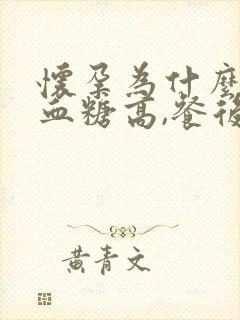 懷孕為什麼
血糖高,餐後
黃青文